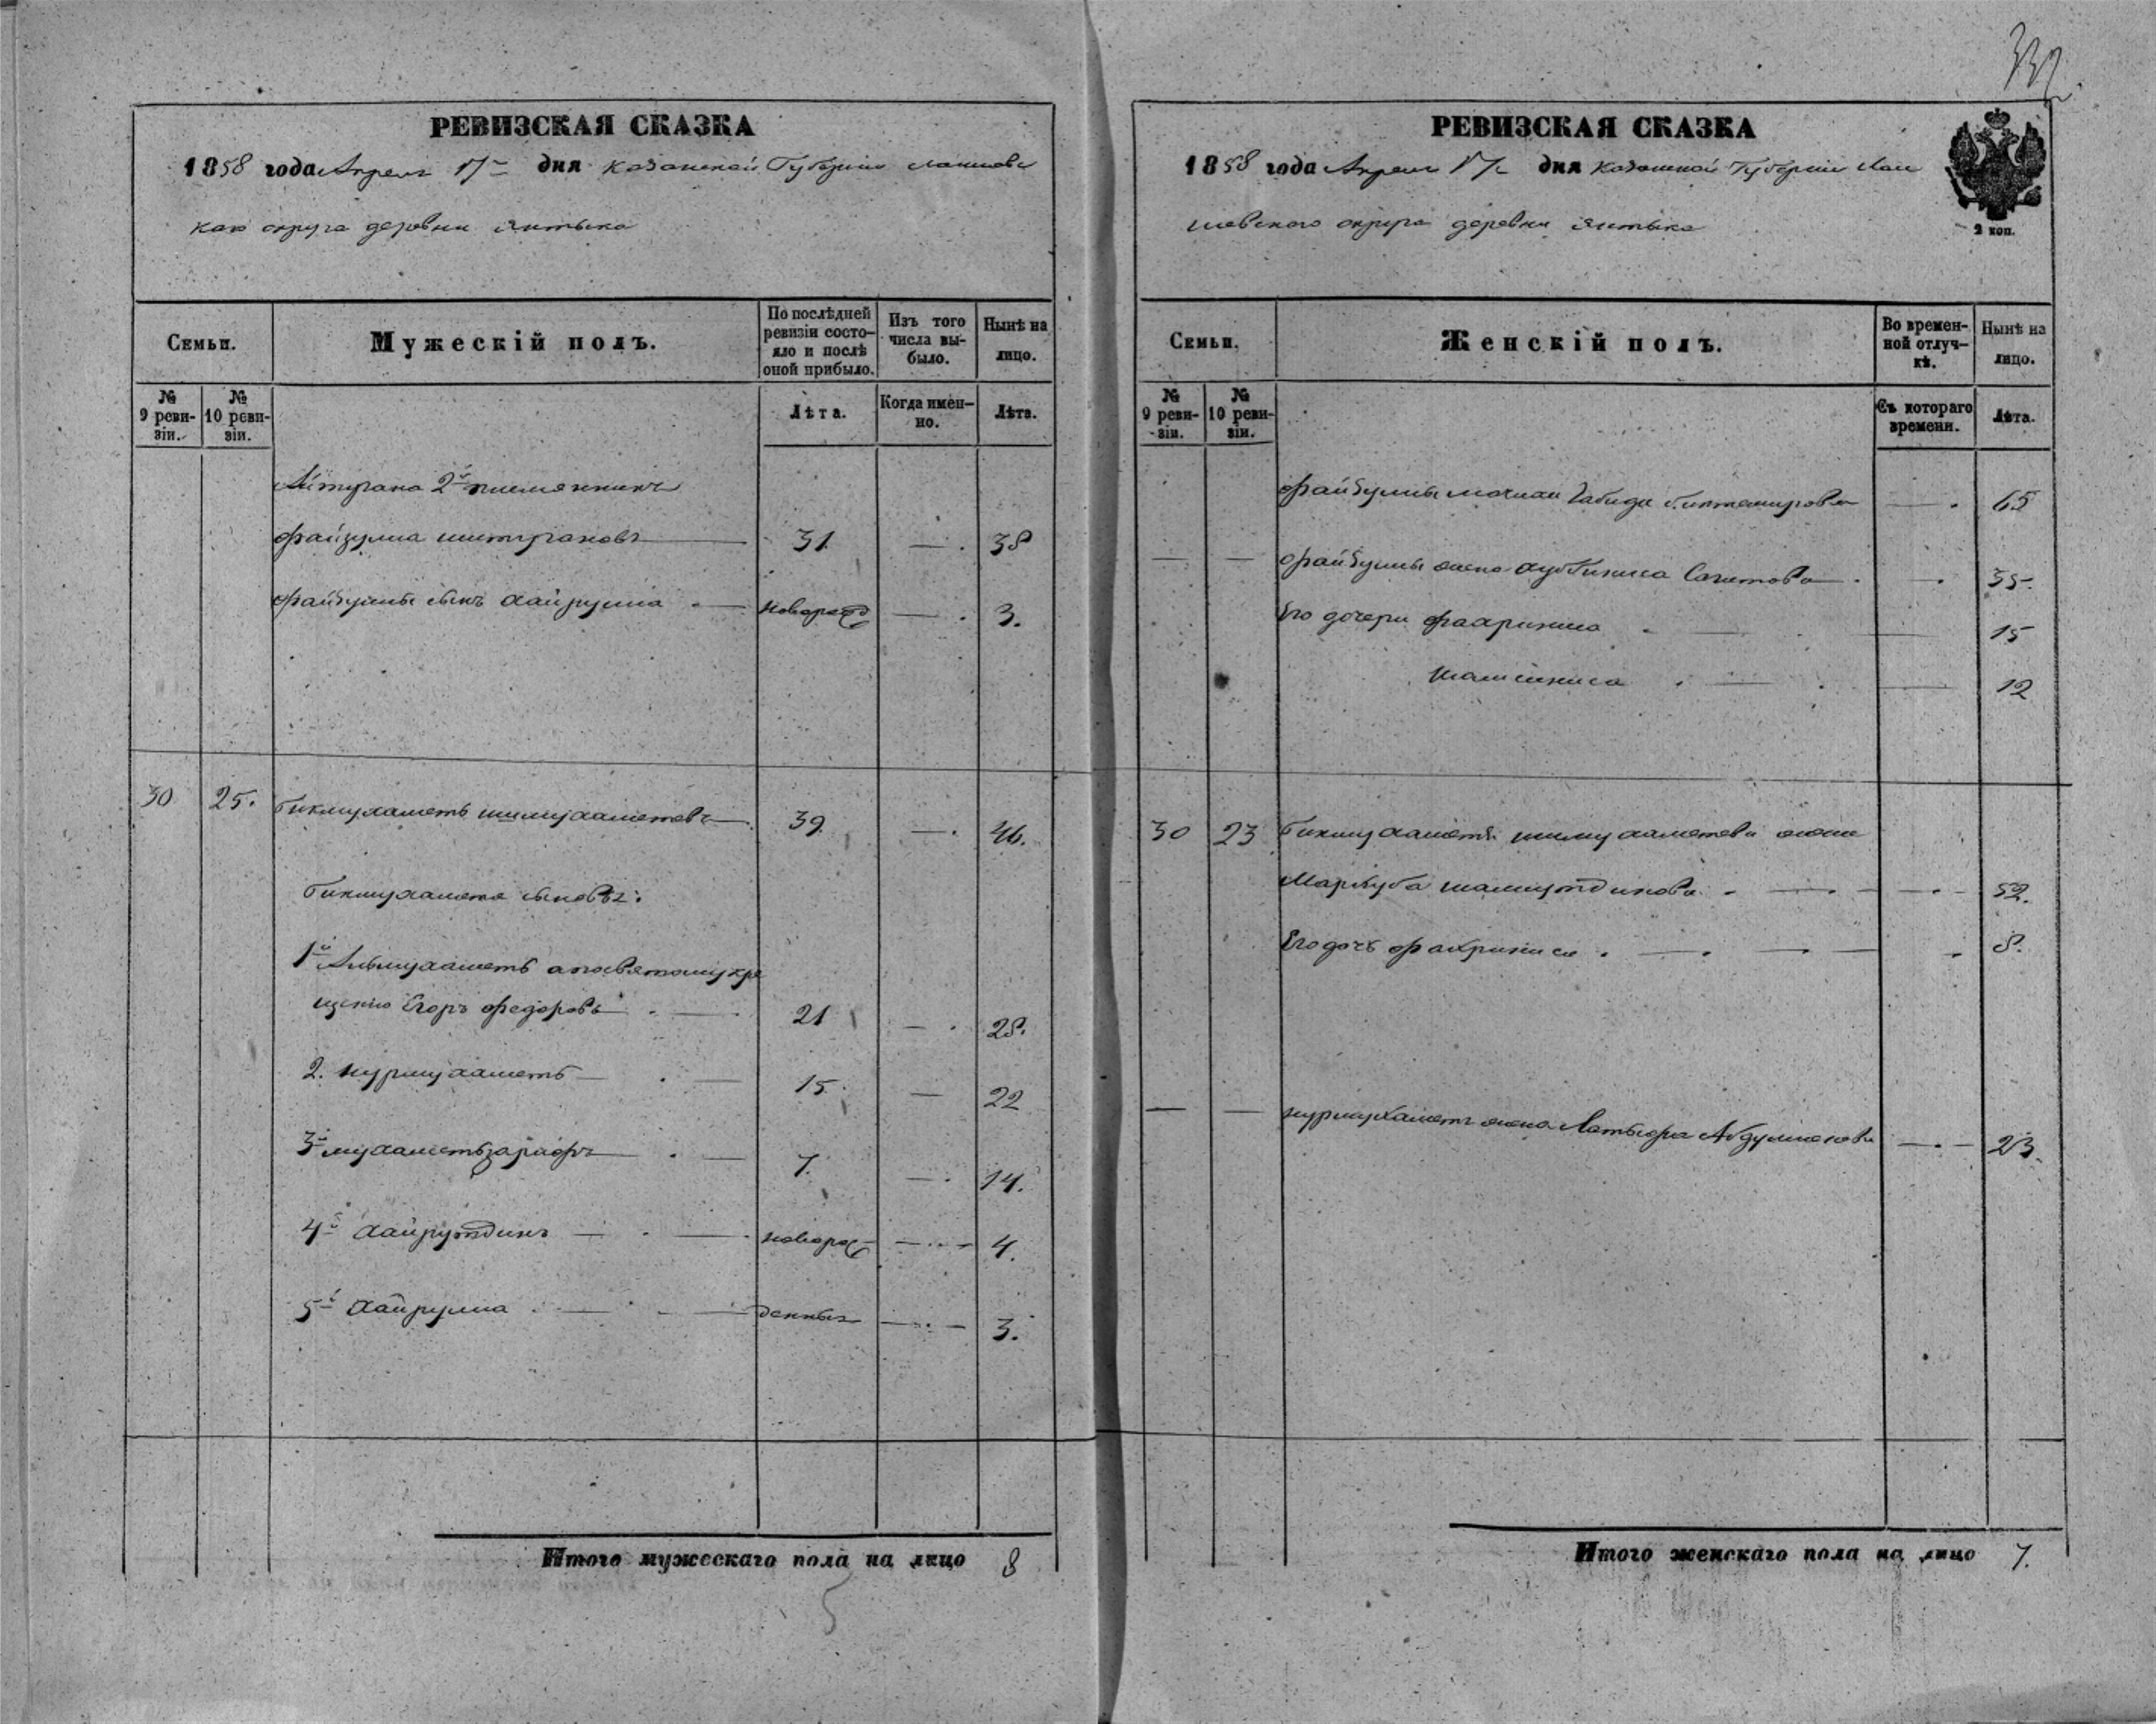 332
РЕВИЗСКАЯ СКАЗКА
1858 года Апреля 17 дня Казанской Губернии Лаишевс
каго округа деревни Янтыка
Семьи.
Мужескій полъ.
По послѣдней ревизіи состо-
яло и послѣ оной прибыло.
Изъ того числа вы-
было.
Нынѣ на лицо.
№ 9 реви-
зіи.
№ 10 реви-
зіи.
Лѣта.
Когда имен-
но.
Лѣта.
2й племянникъ
Файзулла 31 — 38
Файзуллы сынъ Хайрулла новорожд — 3.
30 25. Бикмухаметь Шимухаметевъ 39 — 46.
Бикмухаметя сыновья:
1й Альмухаметь а посвятому кре
щению Егоръ Федоровъ 21 — 28.
2. Нурмухаметь 15. — 22
3й Мухаметьзарифъ 7. — 14.
4й Хайрутдинъ новорож — 4.
5й Хайрулла денные — 3.
Итого мужескаго пола на лицо 8
5
РЕВИЗСКАЯ СКАЗКА
1858 года Апреля 17 дня Казанской Губернии Лаи
шевского округа деревни Янтыка
2 коп.
Семьи.
Женскій полъ.
Во времен-
ной отлуч-
кѣ.
Нынѣ на лицо.
№ 9 реви-
зіи.
№ 10 реви-
зіи.
Съ котораго времени.
Лѣта.
Файзуллы Габида Биктемирова — 65
— — Файзуллы жена Сагитова — 35
Его дочери Фахриниса — 15
Шамсиниса — 12
30 23 Бикмухаметя Шимухаметева жена
Марзуба Шамсутдинова — 52.
Его дочь Фахриниса — 8.
— — Нурмухаметя жена Латыфа Абдуллженова — 23
Итого женскаго пола на лицо 7.